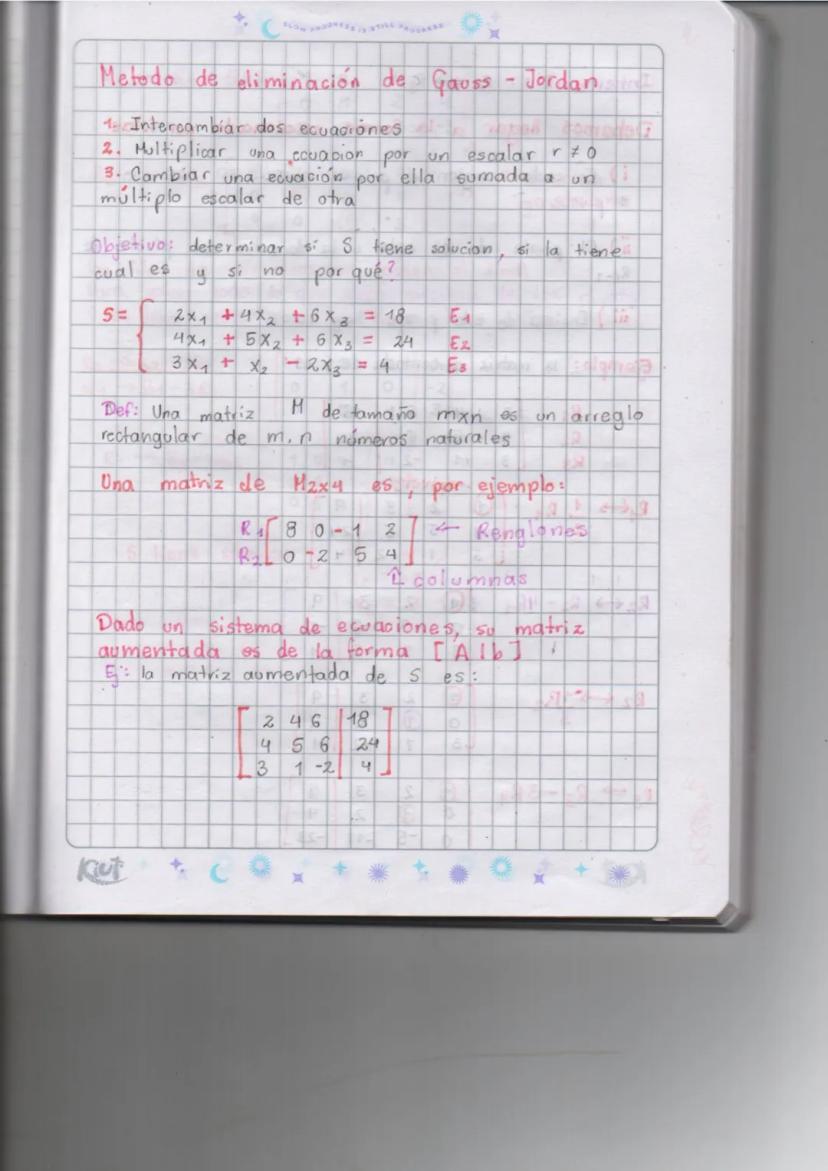 SLOW PROGRESS IS STILL PROGRESS
Metodo de eliminación de Gauss - Jordan
1. Intercambiar dos ecuaciónes
2. Multiplicar una ecuacion por un escalar r ≠ 0
3. Cambiar una ecuación por ella sumada a un
múltiplo escalar de otra
Objetivo: determinar si S tiene solucion, si la tiene
cual es y si no por qué?
S= { 2x₁ + 4x₂ + 6x₃ = 18 E₁
4x₁ + 5x₂ + 6x₃ = 24 E₂
3x₁ + x₂ - 2x₃ = 4 E₃
Def: Una matriz M de tamaño mxn es un arreglo
rectangular de m,n números naturales
Una matriz de M2x4 es, por ejemplo:
R1 [ 8 0 -1 2 ] ← Renglones
R2 [ 0 -2 5 4 ]
⇑ columnas
Dado un sistema de ecuaciones, su matriz
aumentada es de la forma [A|b]
Ej: la matriz aumentada de S es:
[ 2 4 6 | 18 ]
[ 4 5 6 | 24 ]
[ 3 1 -2 | 4 ]
Kiut